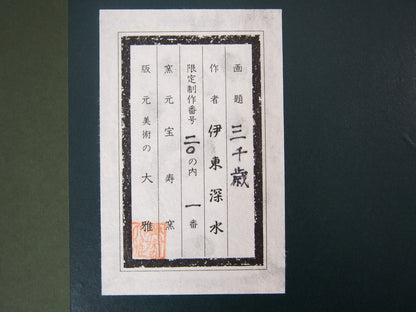 画題 三千歳
作者 伊東深水
限定制作番号 二〇の内 一番
窯元 宝寿窯
版元 美術の大雅